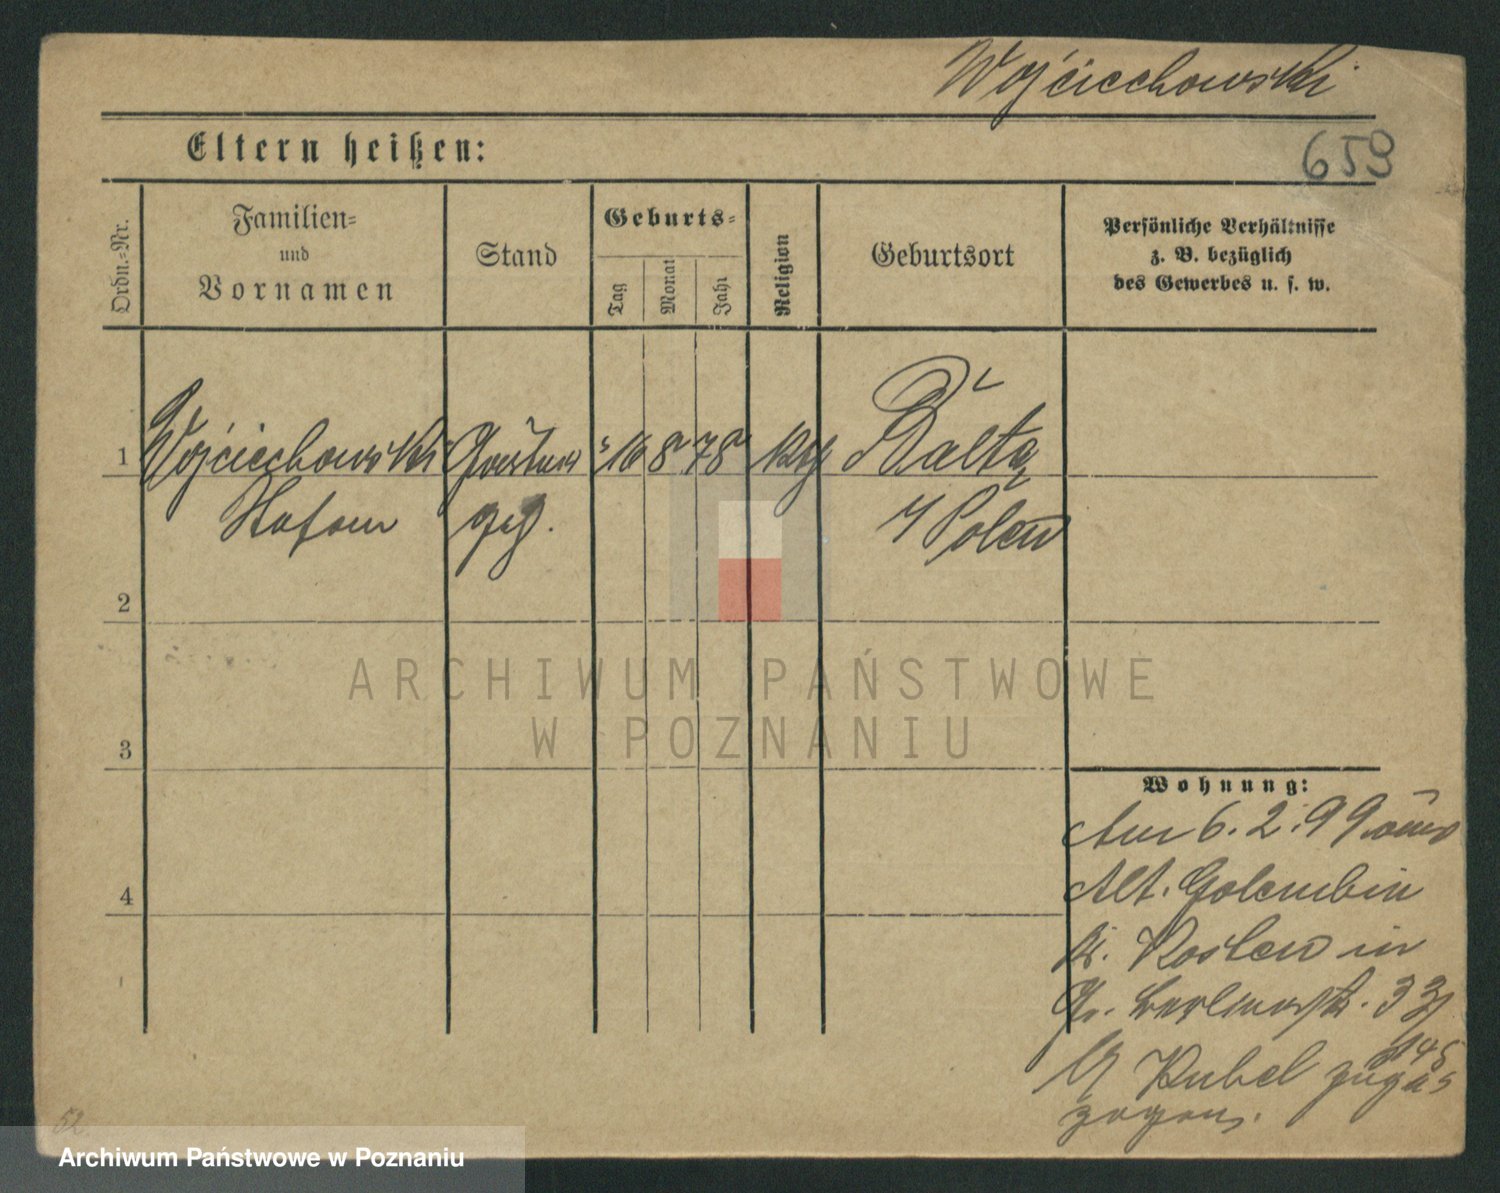 Wojciechowski
Eltern heißen:
659
Ordn.-Nr.
Familien-
und
Vornamen
Stand
Geburts-
Tag
Monat
Jahr
Religion
Geburtsort
Persönliche Verhältnisse
z. B. bezüglich
des Gewerbes u. s. w.
1
Wojciechowski
16 8 78
Stefan
Polen
2
ARCHIWUM PAŃSTWOWE
W POZNANIU
3
4
Wohnung:
Am 6. 2. 99 aus
Alt. Golembin
Kr. Kosten in
Gr. Berlinerstr. 33
Kubel
zogen.
52.
Archiwum Państwowe w Poznaniu